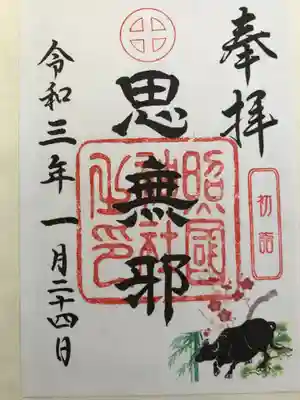 奉拝
初詣
思無邪
照國神社之印
令和三年一月二十四日